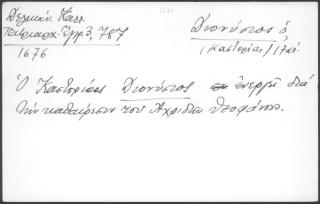 Δελικάν. Καλλ.
Πατριαρχ. Ἔγγρ. 3, 787
1676
Διονύσιος ὁ,
(Καστορίας) 17 αἰ.
Ὁ Καστορίας Διονύσιος ἐνεργεῖ διά
τήν καθαίρεσιν τοῦ Ἀχριδῶν Θεοφάνους.